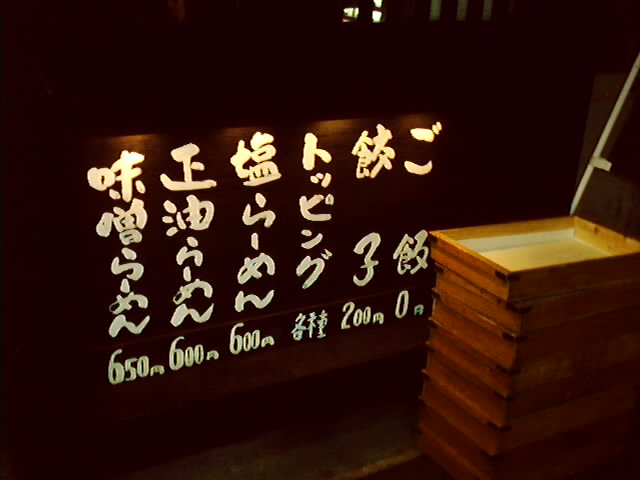 ご飯 0円
餃子 200円
トッピング 各種
塩らーめん 600円
正油らーめん 600円
味噌らーめん 650円